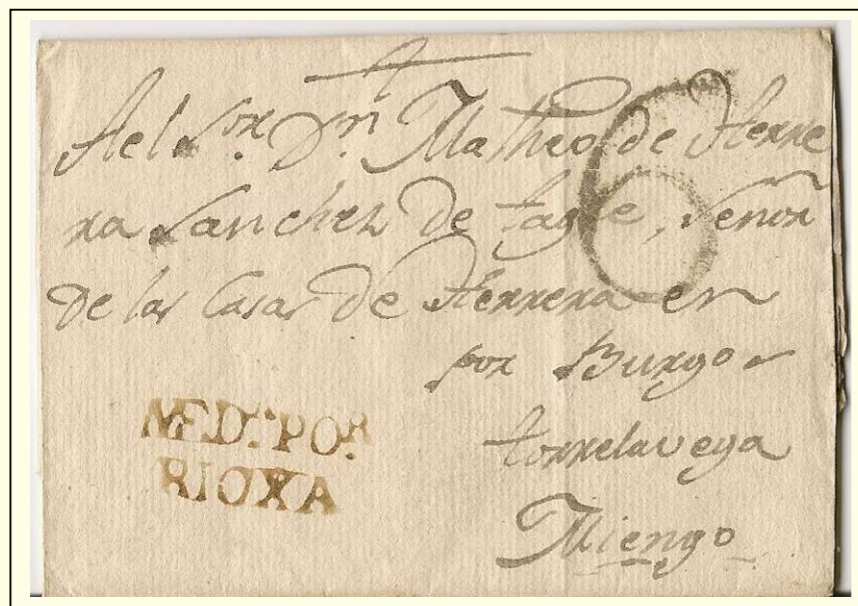 Ael S.or D.n Matheo de Herre
ra Sanchez de tagle, Señor
De las Casas de Herrera en
por Burgos
torrelavega
Miengo
6
MED.A POR
RIOXA